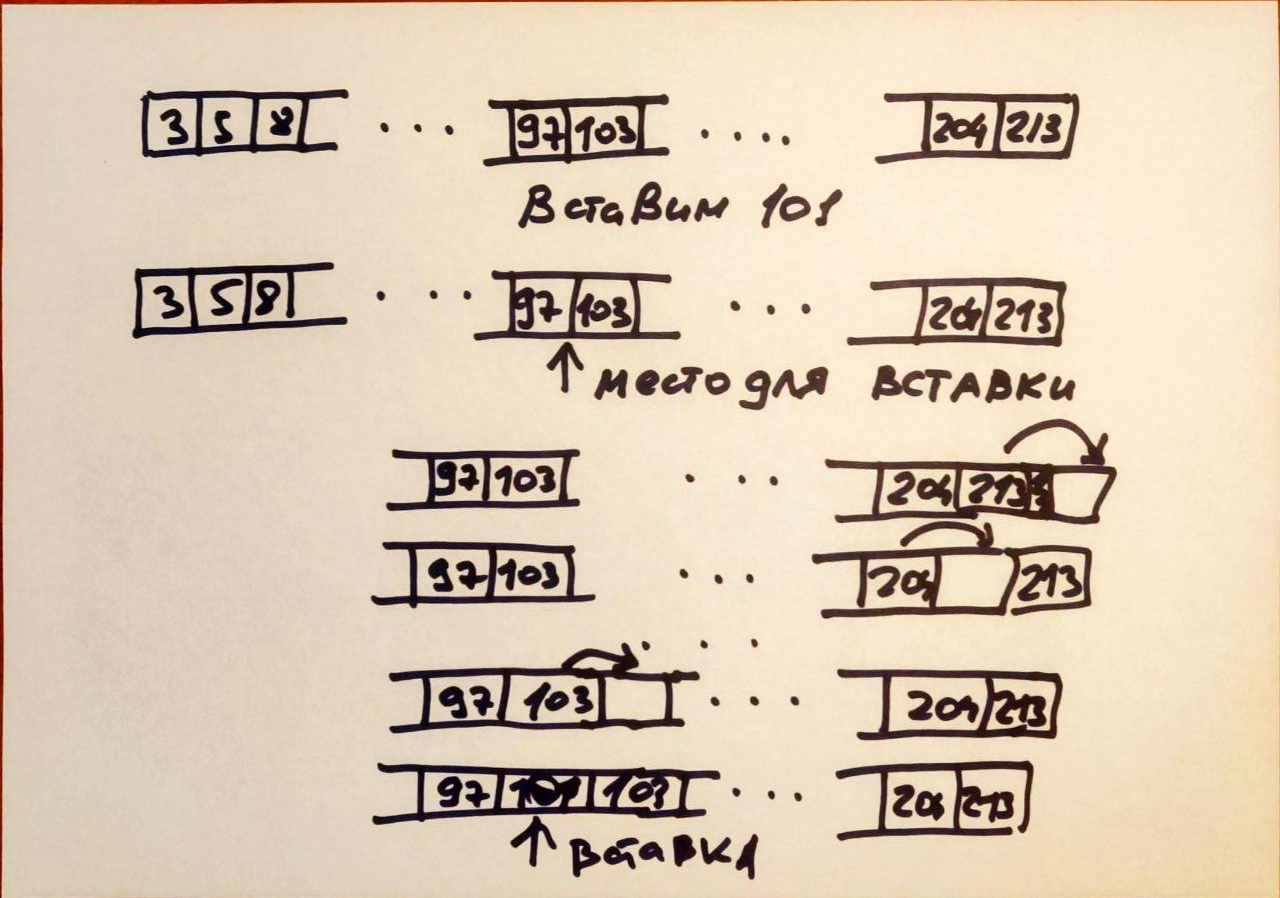 3 5 8 ... 97 103 .... 204 213
Вставим 101
3 5 8 ... 97 103 ... 204 213
↑ место для вставки
97 103 ... 204 213
97 103 ... 204 213
...
97 103 ... 204 213
97 101 103 ... 204 213
↑ вставка